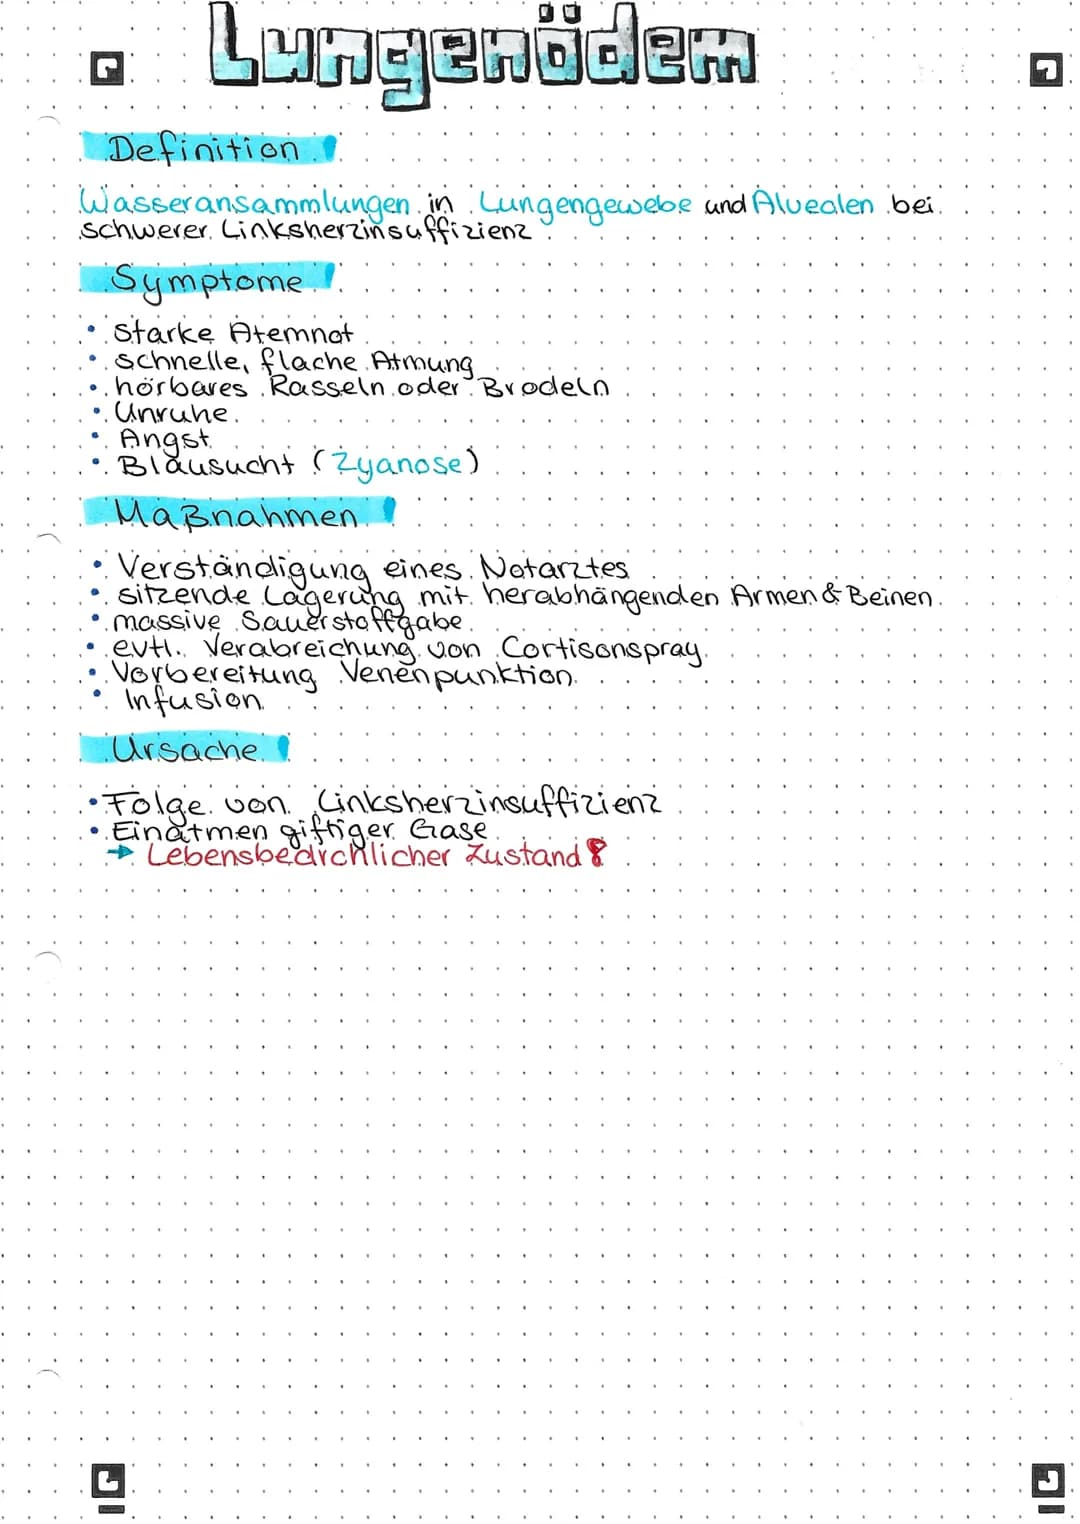 Lungenödem
Definition
Wasseransammlungen in Lungengewebe und Alvealen bei
schwerer Linksherzinsuffizienz
Symptome
• starke Atemnot
• schnelle, flache Atmung
• hörbares Rasseln oder Brodeln
• Unruhe
• Angst
• Blausucht (Zyanose)
Maßnahmen
• Verständigung eines Notarztes
• sitzende Lagerung mit herabhängenden Armen & Beinen
• massive Sauerstoffgabe
• evtl. Verabreichung von Cortisonspray
• Vorbereitung Venenpunktion
• Infusion
Ursache
• Folge von Linksherzinsuffizienz
• Einatmen giftiger Gase
→ Lebensbedrohlicher Zustand!